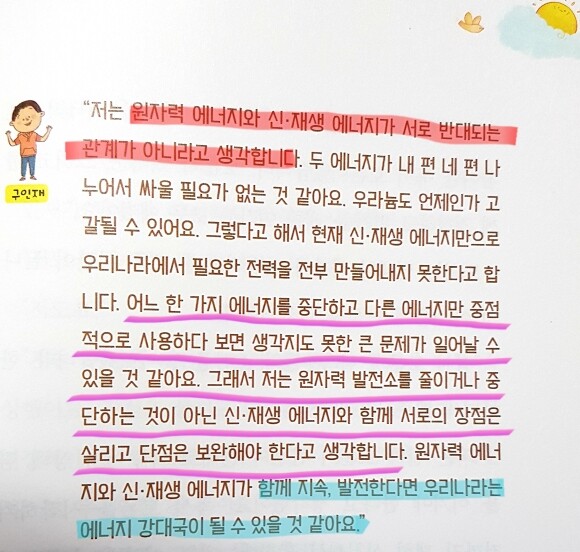 "저는 원자력 에너지와 신·재생 에너지가 서로 반대되는
관계가 아니라고 생각합니다. 두 에너지가 내 편 네 편 나
구인재
누어서 싸울 필요가 없는 것 같아요. 우라늄도 언제인가 고
갈될 수 있어요. 그렇다고 해서 현재 신·재생 에너지만으로
우리나라에서 필요한 전력을 전부 만들어내지 못한다고 합
니다. 어느 한 가지 에너지를 중단하고 다른 에너지만 중점
적으로 사용하다 보면 생각지도 못한 큰 문제가 일어날 수
있을 것 같아요. 그래서 저는 원자력 발전소를 줄이거나 중
단하는 것이 아닌 신·재생 에너지와 함께 서로의 장점은
살리고 단점은 보완해야 한다고 생각합니다. 원자력 에너
지와 신·재생 에너지가 함께 지속, 발전한다면 우리나라는
에너지 강대국이 될 수 있을 것 같아요."